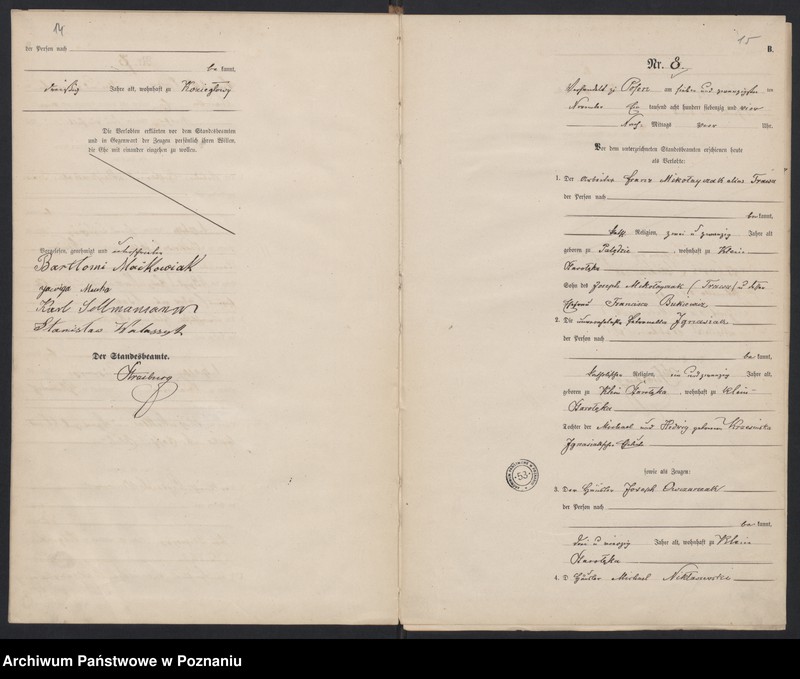 14
der Person nach
be kannt,
dreißig Jahre alt, wohnhaft zu Kozieglowy
Die Verlobten erklärten vor dem Standesbeamten
und in Gegenwart der Zeugen persönlich ihren Willen,
die Ehe mit einander eingehen zu wollen.
Vorgelesen, genehmigt und unterschrieben
Bartlomi Maikowiak
Karl Sellmansann
Stanislaw
Der Standesbeamte.
15
B.
Nr. 8.
Verhandelt zu Posen am sieben und zwanzigsten ten
November Ein tausend acht hundert siebenzig und vier
Nach Mittags vier Uhr.
Vor dem unterzeichneten Standesbeamten erschienen heute
als Verlobte:
1. Der Arbeiter Franz Mikolayczak alias
der Person nach
be kannt,
kath. Religion, zwei u zwanzig Jahre alt
geboren zu Palędzie, wohnhaft zu Klein
Starolęka
Sohn des Joseph Mikolayczak u dessen
Ehefrau Francisca
2. Die unverehelichte Petronella Ignasiak
der Person nach
be kannt,
katholischer Religion, ein und zwanzig Jahre alt,
geboren zu Klein Starolęka, wohnhaft zu Klein-
Starolęka
Tochter der Michael und Hedwig geborenen
Ignasiakschen Eheleute
sowie als Zeugen:
3. Der Häusler Joseph Owczarczak
der Person nach
be kannt,
drei u vierzig Jahre alt, wohnhaft zu Klein
Starolęka
4. D Häusler Michael
53
Archiwum Państwowe w Poznaniu